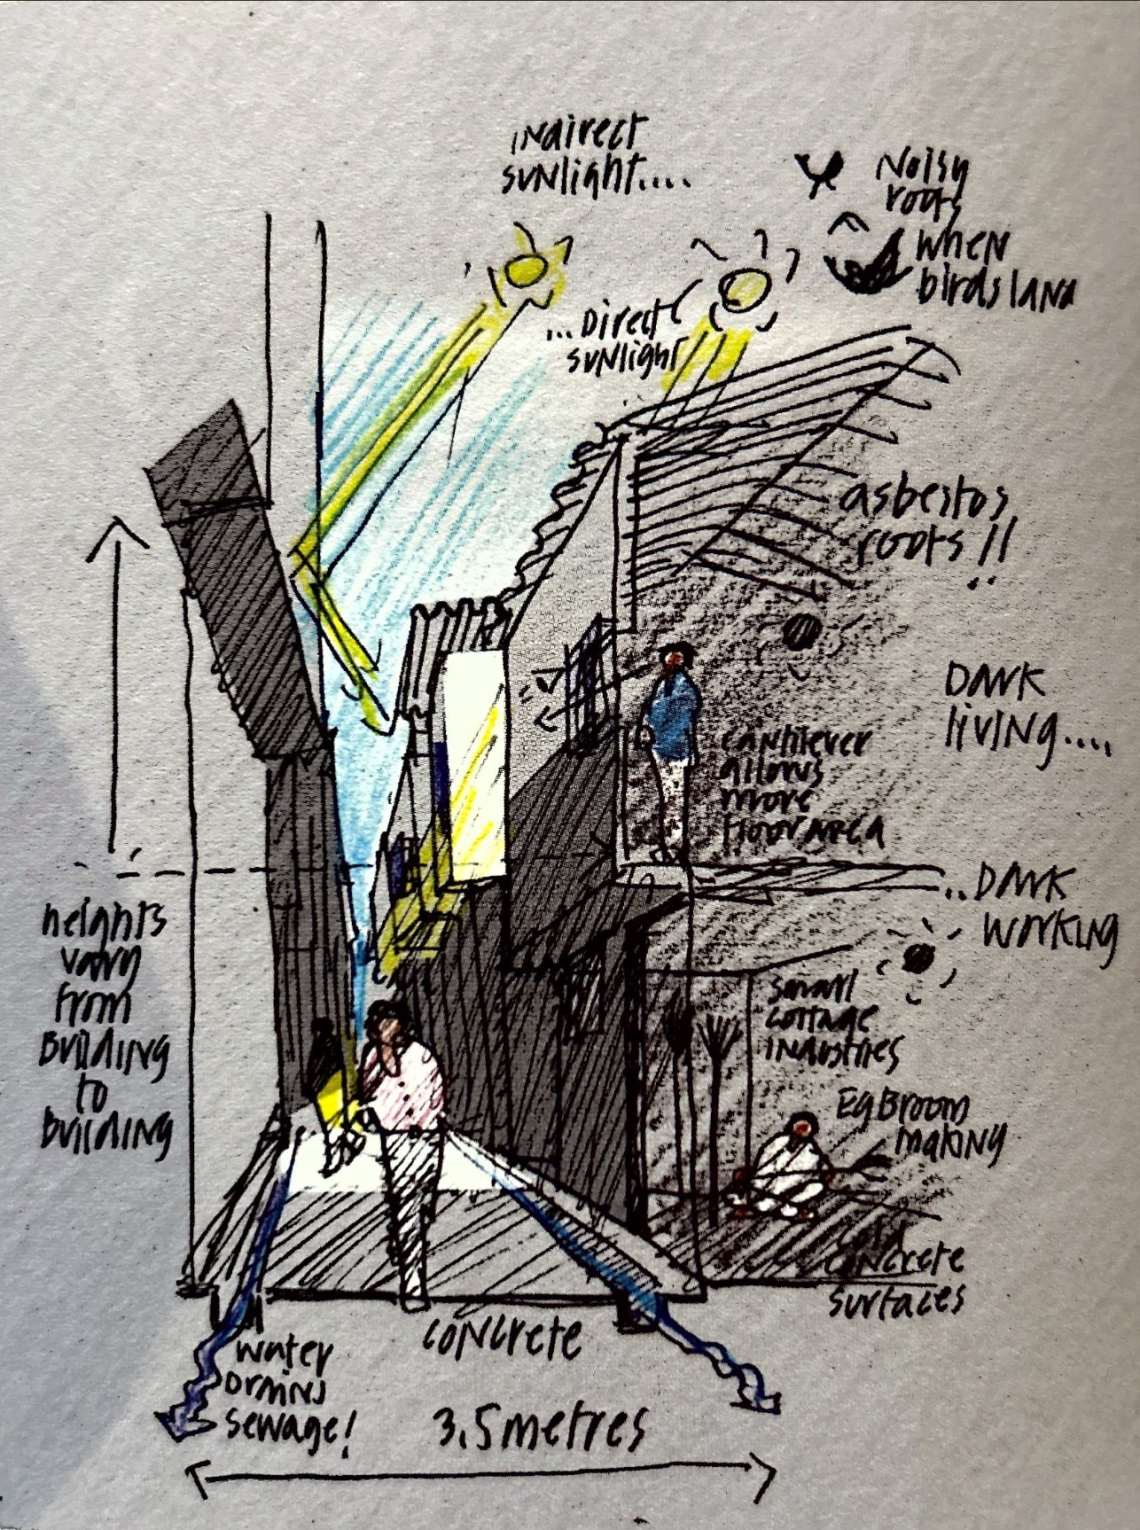 indirect
sunlight....
Noisy
roofs
when
birds land
...Direct
sunlight
asbestos
roofs!!
Dark
living....
cantilever
allows
more
floor area
..Dark
working
heights
vary
from
Building
to
building
small
cottage
industries
Eg Broom
making
cold
concrete
surfaces
concrete
water
Drains
sewage!
3.5 metres